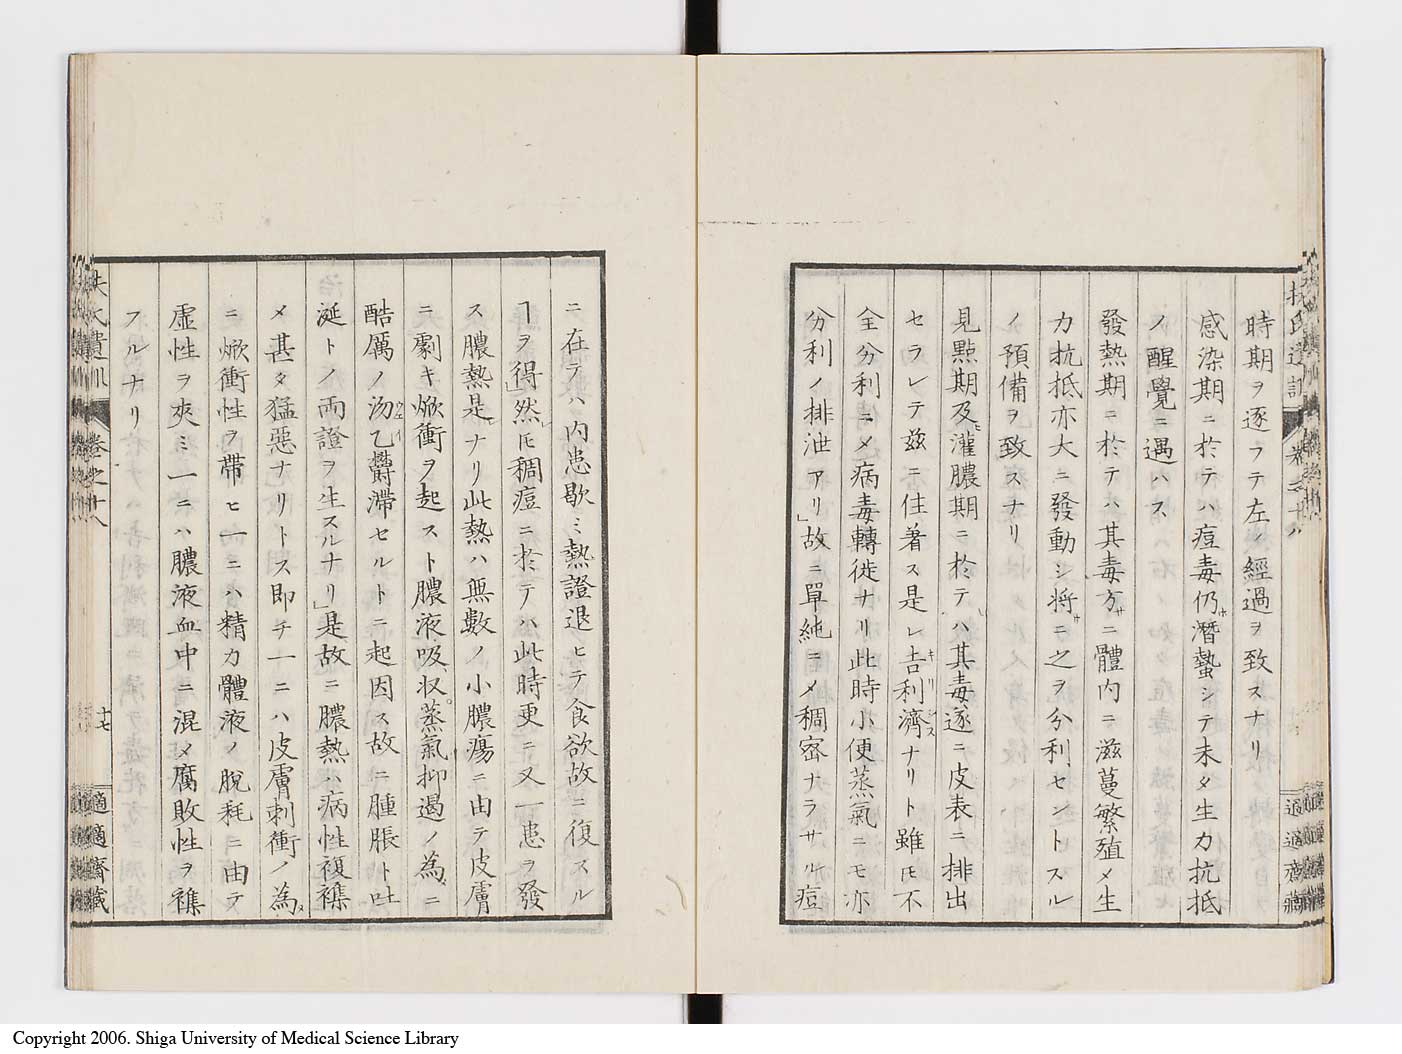 時期ヲ逐フテ左ノ經過ヲ致スナリ
感染期ニ於テハ痘毒仍潛蟄シテ未タ生力抗抵
ノ醒覺ニ遇ハス
發熱期ニ於テハ其毒方ニ體内ニ滋蔓繁殖〆生
力抗抵亦大ニ發動シ將ニ之ヲ分利セントスル
ノ預備ヲ致スナリ
見點期及灌膿期ニ於テハ其毒逐ニ皮表ニ排出
セラレテ兹ニ住著ス是レ𠮷利濟ナリト雖𪜈不
全分利ニ〆病毒轉徙ナリ此時小便蒸氣ニモ亦
分利ノ排泄アリ」故ニ單純ニ〆稠密ナラサル痘
ニ在テハ内患歇ミ熱證退ヒテ食欲故ニ復スル
ヿヲ得」然𪜈稠痘ニ於テハ此時更ニ又一患ヲ發
ス膿熱是ナリ此熱ハ無數ノ小膿瘍ニ由テ皮膚
ニ劇キ焮衝ヲ起スト膿液吸収蒸氣抑遏ノ為ニ
酷厲ノ汤乙欝滯セルトニ起因ス故ニ腫脹ト吐
涎トノ両證ヲ生スルナリ」是故ニ膿熱ハ病性複襍
メ甚タ猛惡ナリトス即チ一ニハ皮膚刺衝ノ為
ニ焮衝性ヲ帶ヒ一ニハ精力體液ノ脱耗ニ由テ
虚性ヲ夾ミ一ニハ膿液血中ニ混〆腐敗性ヲ襍
フルナリ
扶氏遺訓 卷之十八
十七
適適齋藏
Copyright 2006. Shiga University of Medical Science Library